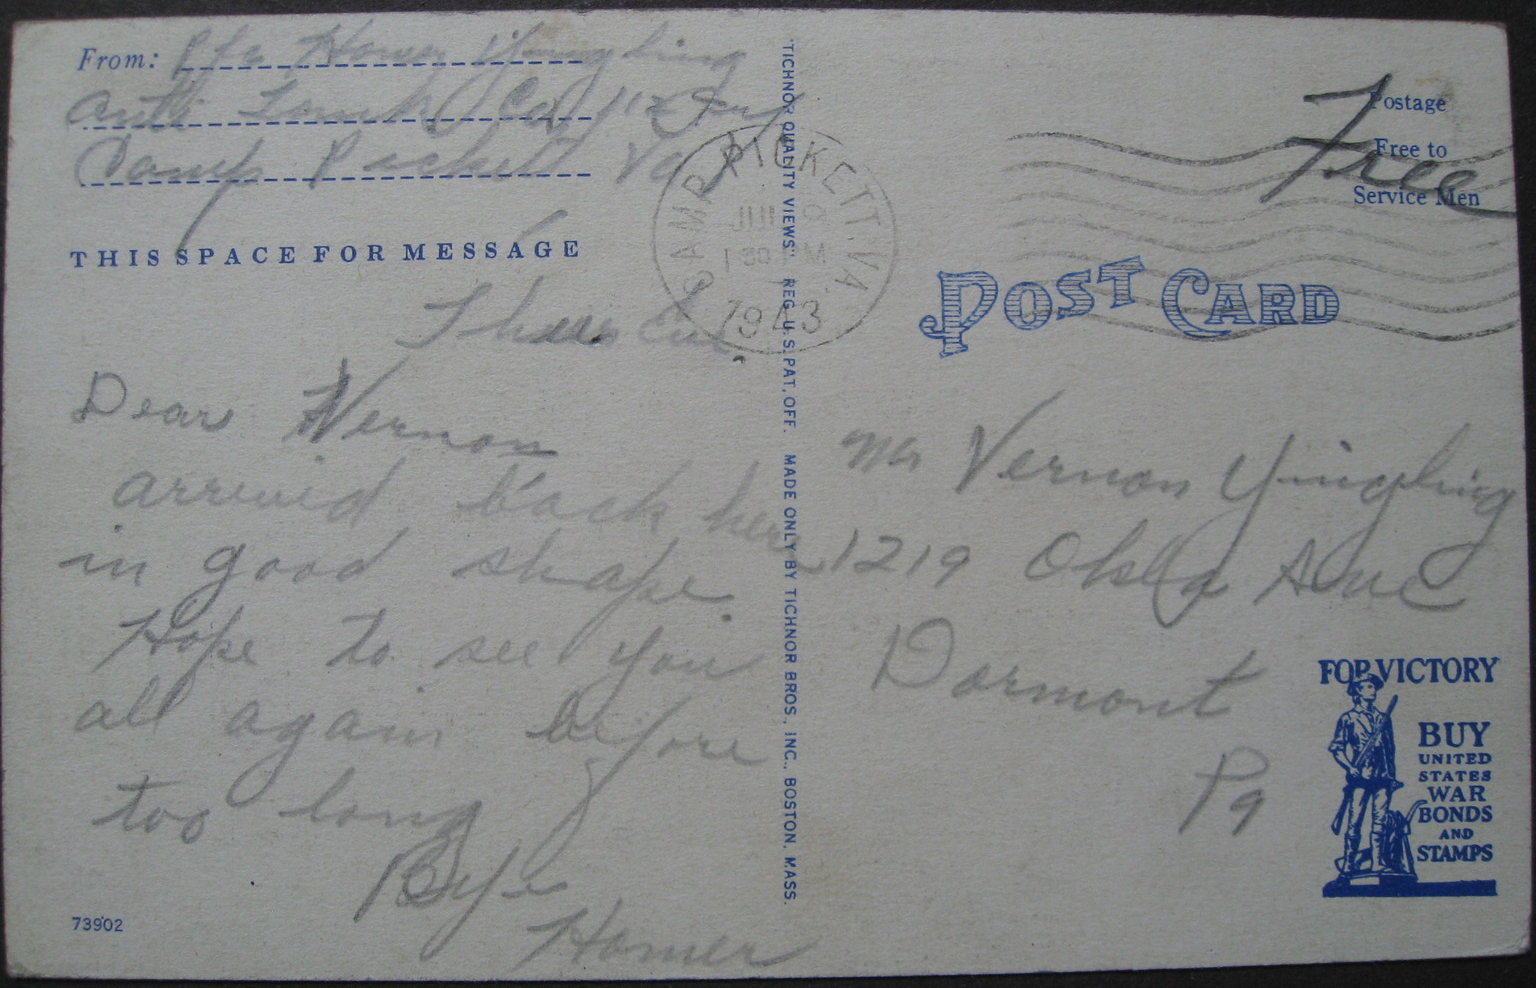 From: Pfc Homer Yingling
Anti Tank Co 112 Inf
Camp Pickett Va
THIS SPACE FOR MESSAGE
Thurs Eve
Dear Vernon
arrived back here
in good shape.
Hope to see you
all again before
too long
Bye
Homer
73902
"TICHNOR QUALITY VIEWS" REG. U.S. PAT. OFF. MADE ONLY BY TICHNOR BROS., INC., BOSTON, MASS.
CAMP PICKETT. VA.
1 30 PM
1943
Postage
Free to
Service Men
Free
POST CARD
Mr Vernon Yingling
1219 Okla Ave
Dormont
Pa
FOR VICTORY
BUY
UNITED
STATES
WAR
BONDS
AND
STAMPS